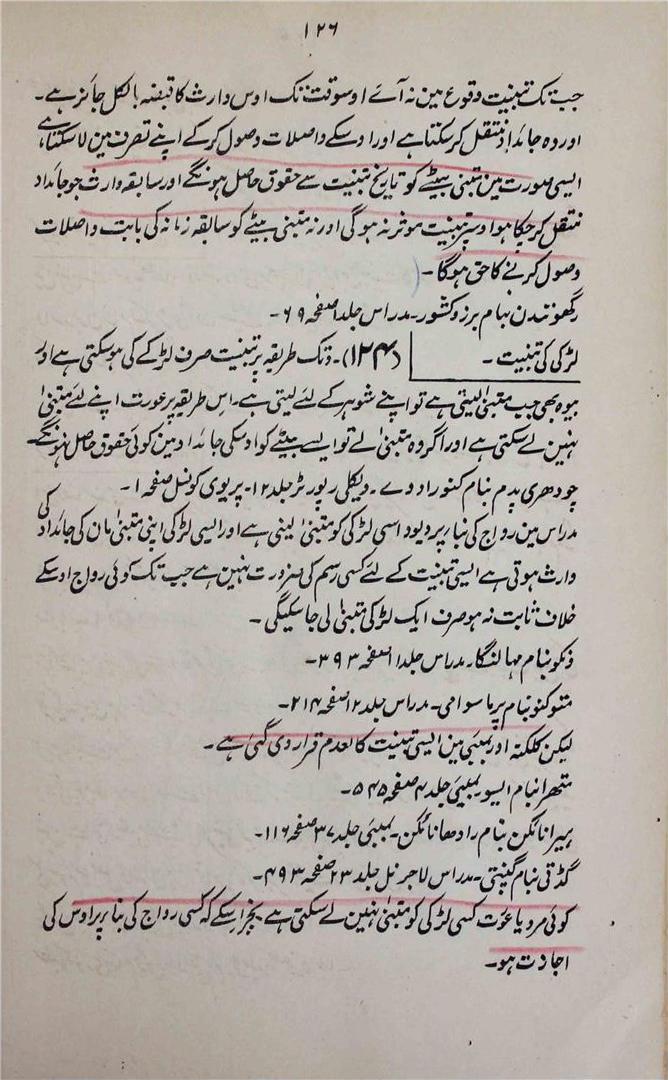 ۱۲۶
جب تک تبنیت وقوع مین نہ آئے اوسوقت تک اوس وارث کا قبضہ بالکل جائز ہے۔
اور وہ جائداد منتقل کر سکتا ہے اور اوسکے واصلات وصول کر کے اپنے تصرف مین لا سکتا ہے،
ایسی صورت مین متبنیٰ بیٹے کو تاریخ تبنیت سے حقوق حاصل ہونگے اور سابقہ وارث جو جائداد
منتقل کر چکا ہو اوسپر تبنیت موثر نہ ہوگی اور نہ متبنیٰ بیٹے کو سابقہ زمانہ کی بابت واصلات
وصول کرنے کا حق ہوگا۔
رگھونندن بنام برزوکشور۔ مدراس جلد ۱ صفحہ ۶۹۔
لڑکی کی تبنیت۔ (۱۲۴)۔ دتک طریقہ پر تبنیت صرف لڑکے کی ہو سکتی ہے اور
بیوہ بھی جب متبنیٰ لیتی ہے تو اپنے شوہر کے لئے لیتی ہے۔ اس طریقہ پر عورت اپنے لئے متبنیٰ
نہین لے سکتی ہے اور اگر وہ متبنیٰ لے تو ایسے بیٹے کو اوسکی جائداد مین کوئی حقوق حاصل نہونگے۔
چودھری پدم بنام کنور اودے۔ ویکلی رپورٹر جلد ۱۲۔ پریوی کونسل صفحہ ۱۔
مدراس مین رواج کی بنا پر دیوداسی لڑکی کو متبنیٰ لیتی ہے اور ایسی لڑکی اپنی متبنیٰ مان کی جائداد کی
وارث ہوتی ہے ایسی تبنیت کے لئے کسی رسم کی ضرورت نہین ہے جب تک کوئی رواج اوسکے
خلاف ثابت نہ ہو صرف ایک لڑکی متبنیٰ لی جا سکیگی۔
ونکو بنام مہالنگا۔ مدراس جلد ۱۱ صفحہ ۳۹۳۔
متوکنو بنام پرماسوامی۔ مدراس جلد ۱۲ صفحہ ۲۱۴۔
لیکن کلکتہ اور بمبئی مین ایسی تبنیت کالعدم قرار دی گئی ہے۔
متھرا بنام ایسو بمبئی جلد ۴ صفحہ ۵۴۵۔
ہیرا نائکن بنام رادھا نائکن۔ بمبئی جلد ۳۷ صفحہ ۱۱۶۔
گڈتی بنام گنپتی۔ مدراس لا جرنل جلد ۲۳ صفحہ ۴۹۳۔
کوئی مرد یا عورت کسی لڑکی کو متبنیٰ نہین لے سکتی ہے بجز اسکے کہ کسی رواج کی بنا پر اوس کی
اجازت ہو۔